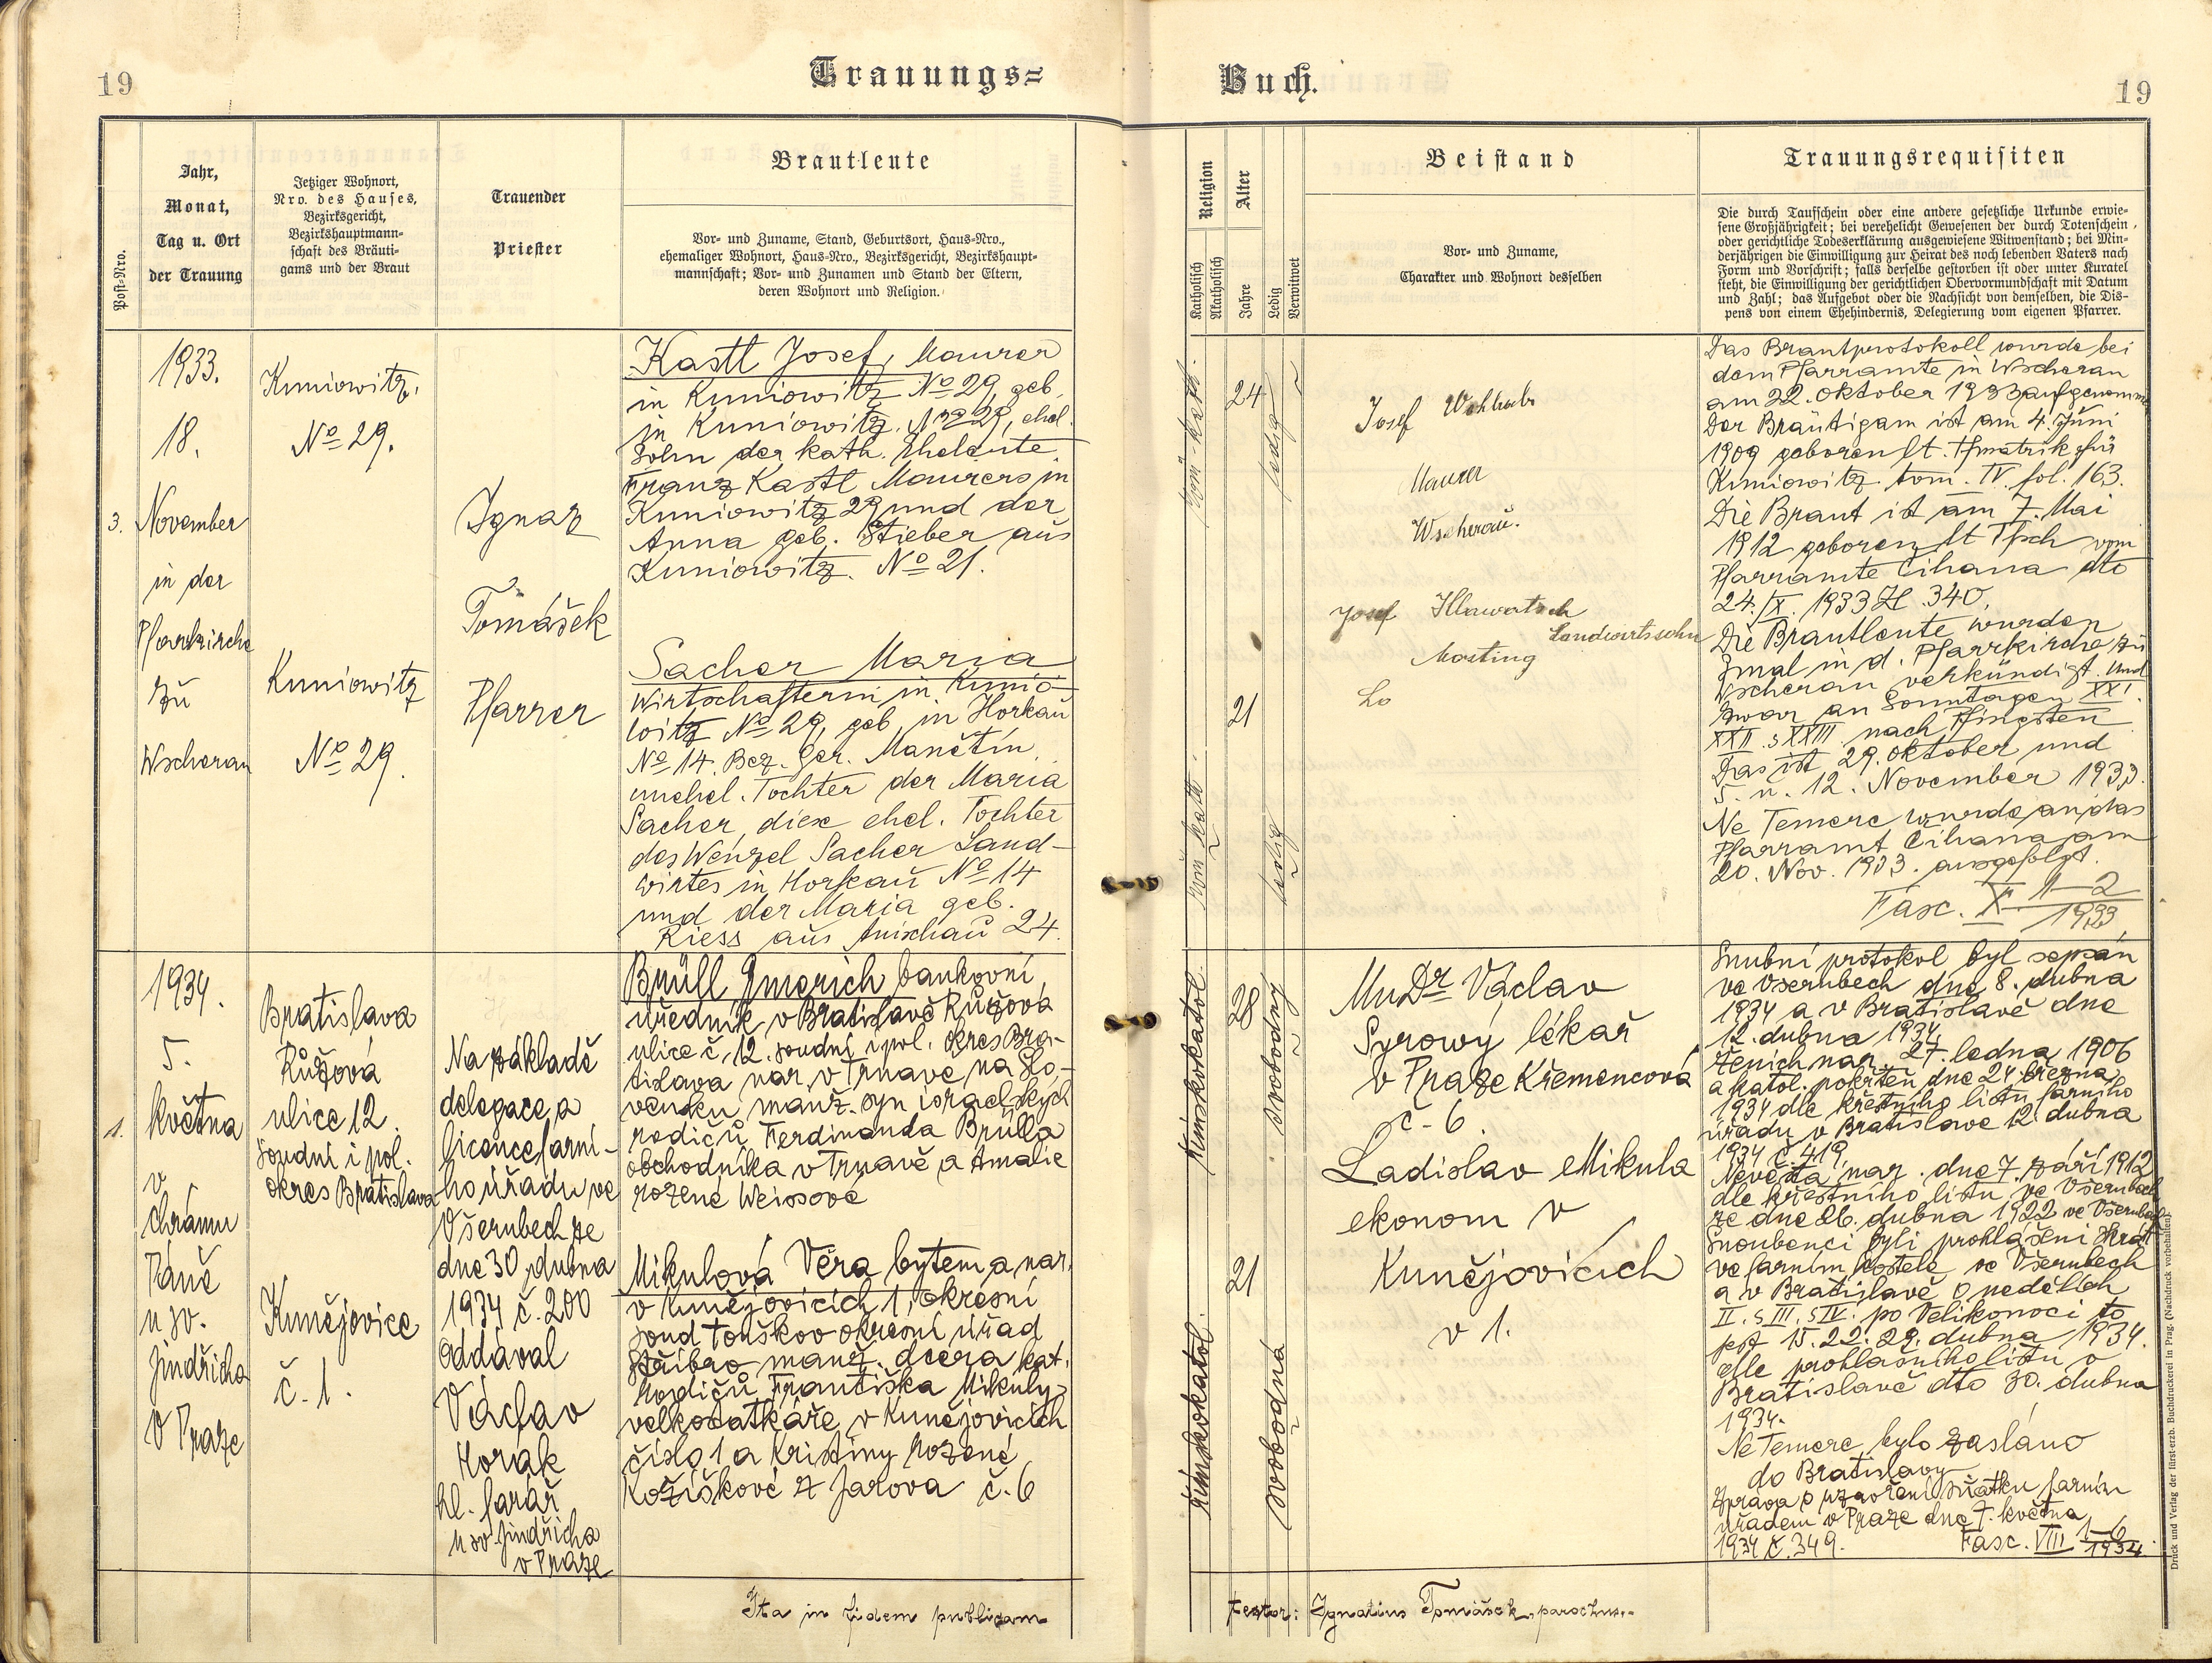 19
Trauungs=
Buch.
19
Post-Nro.
Jahr,
Monat,
Tag u. Ort
der Trauung
Jetziger Wohnort,
Nro. des Hauses,
Bezirksgericht,
Bezirkshauptmann-
schaft des Bräuti-
gams und der Braut
Trauender
Priester
Brautleute
Vor- und Zuname, Stand, Geburtsort, Haus-Nro.,
ehemaliger Wohnort, Haus-Nro., Bezirksgericht, Bezirkshaupt-
mannschaft; Vor- und Zunamen und Stand der Eltern,
deren Wohnort und Religion.
Religion
Katholisch
Akatholisch
Alter
Jahre
Ledig
Verwitwet
Beistand
Vor- und Zuname,
Charakter und Wohnort desselben
Trauungsrequisiten
Die durch Taufschein oder eine andere gesetzliche Urkunde erwie-
sene Großjährigkeit; bei verehelicht Gewesenen der durch Totenschein
oder gerichtliche Todeserklärung ausgewiesene Witwenstand; bei Min-
derjährigen die Einwilligung zur Heirat des noch lebenden Vaters nach
Form und Vorschrift; falls derselbe gestorben ist oder unter Kuratel
steht, die Einwilligung der gerichtlichen Obervormundschaft mit Datum
und Zahl; das Aufgebot oder die Nachsicht von demselben, die Dis-
pens von einem Ehehindernis, Delegierung vom eigenen Pfarrer.
3.
1933.
18.
November
in der
Pfarrkirche
zu
Wscherau
Kuniowitz,
No 29.
Kuniowitz
No 29.
Ignaz
Tomášek
Pfarrer
Kastl Josef, Maurer
in Kuniowitz No 29, geb.
in Kuniowitz No 29, ehel.
Sohn der kath. Eheleute
Franz Kastl Maurers in
Kuniowitz 29 und der
Anna geb. Stieber aus
Kuniowitz. No 21.
Sacher Maria
Wirtschafterin in Kunio-
witz No 29, geb. in Horkau
No 14. Bez. Ger. Manětín
unehel. Tochter der Maria
Sacher, diese ehel. Tochter
des Wenzel Sacher Land-
wirtes in Horkau No 14
und der Maria geb.
Riess aus Anischau 24.
röm-kath.
24
ledig
röm kath.
21
ledig
Josef Wohlrab
Maurer
Wscherau.
Josef Hlawatsch
Landwirtssohn
Mosting
Das Brautprotokoll wurde bei
dem Pfarramte in Wscherau
am 22. Oktober 1933 aufgenommen
Der Bräutigam ist am 4. Juni
1909 geboren lt. Tfmatrik für
Kuniowitz tom. IV. fol. 163.
Die Braut ist am 7. Mai
1912 geboren lt Tfsch vom
Pfarramte Čihana dto
24./X. 1933 Zl. 340.
Die Brautleute wurden
3mal in d. Pfarrkirche zu
Wscherau verkündigt und
zwar an Sonntagen XXI.
XXII. s XXIII nach Pfingsten
Das ist 29. Oktober und
5. u. 12. November 1933.
Ne Temere wurde an das
Pfarramt Čihana am
20. Nov. 1933. ausgefolgt.
Fasc. X 1-2
1933
1.
1934.
5.
května
v
chrámu
Páně
u sv.
Jindřicha
v Praze
Bratislava
Růžová
ulice 12.
soudní i pol.
okres Bratislava
Kunějovice
č. 1.
Na základě
delegace a
licence farní-
ho úřadu ve
Všerubech ze
dne 30 dubna
1934 č. 200
oddával
Václav
Horák
hl. farář
u sv Jindřicha
v Praze
Brüll Emerich bankovní
úředník v Bratislavě Růžová
ulice č. 12. soudní i pol. okres Bra-
tislava nar. v Trnave, na Slo-
vensku manž. syn israelských
rodičů Ferdinanda Brülla
obchodníka v Trnavě a Amalie
rozené Weissové
Mikulová Věra bytem a nar.
v Kunějovicích 1, okresní
soud Touškov okresní úřad
Stříbro manž. dcera kat.
rodičů Františka Mikuly
velkostatkáře v Kunějovicích
číslo 1 a Kristiny rozené
Kožíškové z Jarova č. 6
římskokatol.
28
svobodný
římskokatol.
21
svobodná
MuDr Václav
Syrowý lékař
v Praze Křemencová
č. 6.
Ladislav Mikula
ekonom v
Kunějovicích
v 1.
Snubní protokol byl sepsán
ve Všerubech dne 8. dubna
1934 a v Bratislavě dne
12. dubna 1934.
Ženich nar. 27. ledna 1906
a katol. pokřtěn dne 24. března
1934 dle křestního listu farního
úřadu v Bratislave 12. dubna
1934 č. 419.
Nevěsta nar. dne 7. září 1912
dle křestního listu ve Všerubech
ze dne 26. dubna 1922 ve Všerubech
Snoubenci byli prohlášeni 3krát
ve farním kostele ve Všerubech
a v Bratislavě o nedělích
II. s III. s IV. po Velikonoci to
jest 15. 22. 29. dubna 1934.
dle prohlašního listu v
Bratislavě dto 30. dubna
1934.
Ne Temere bylo zasláno
do Bratislavy
Zpráva o uzavření sňatku farním
úřadem v Praze dne 7. května
1934 č. 349. Fasc. VIII 1-6
1934
Ita in fidem publicam
testor: Ignatius Tomášek, parochus.
Druck und Verlag der fürst-erzb. Buchdruckerei in Prag. (Nachdruck vorbehalten)